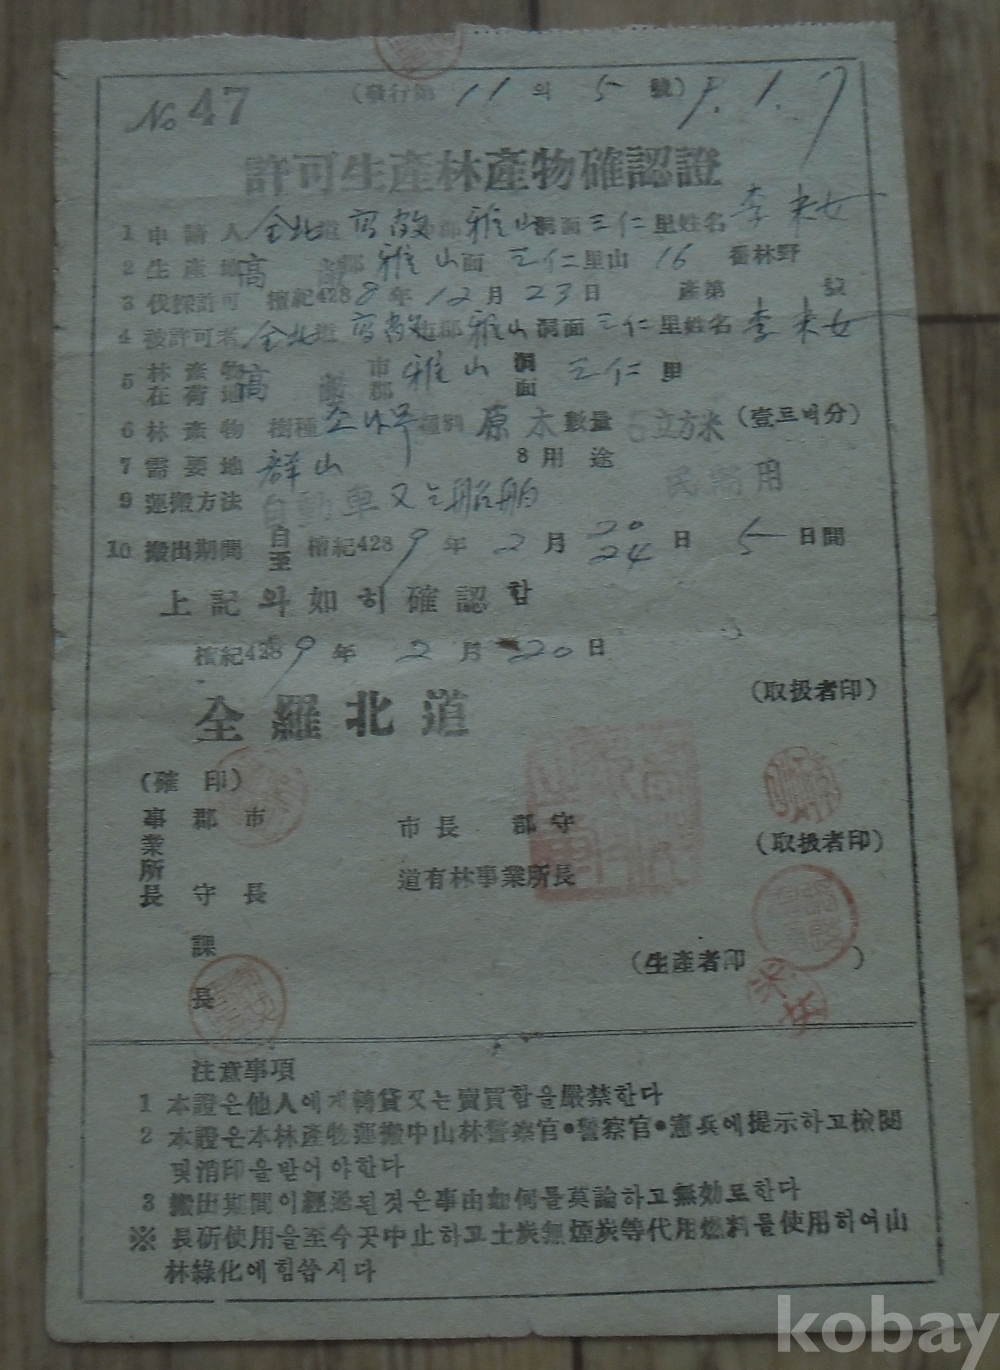 No 47 (發行第 11 의 5 號) 9. 1. 7
許可生產林產物確認證
1 申請人 全北道 高敞郡 雅山洞面 三仁里姓名 李末女
2 生產地 高敞郡 雅山面 三仁里山 16 番林野
3 伐採許可 檀紀4288年 12月 23日 產第 號
4 被許可者 全北道 高敞郡 雅山洞面 三仁里姓名 李末女
5 林產物在荷地 高敞市郡 雅山洞面 三仁里
6 林產物 樹種 소나무 種別 原木 數量 5立方米 (壹트럭分)
7 需要地 群山 8 用途 民需用
9 運搬方法 自動車又는船舶
10 搬出期間 自至 檀紀4289年 2月 20 24日 5日間
上記와如히確認함
檀紀4289年 2月 20日
全羅北道
(取扱者印)
(確印)
事業所長 郡守 市長
市長 郡守
(取扱者印)
道有林事業所長
課長
(生產者印 )
注意事項
1 本證은他人에게轉貸又는賣買함을嚴禁한다
2 本證은本林產物運搬中山林警察官•警察官•憲兵에提示하고檢閱
및消印을받어야한다
3 搬出期間이經過된것은事由如何를莫論하고無効로한다
※ 長斫使用을至今곳中止하고土炭無煙炭等代用燃料를使用하여山
林綠化에힘씁시다
kobay